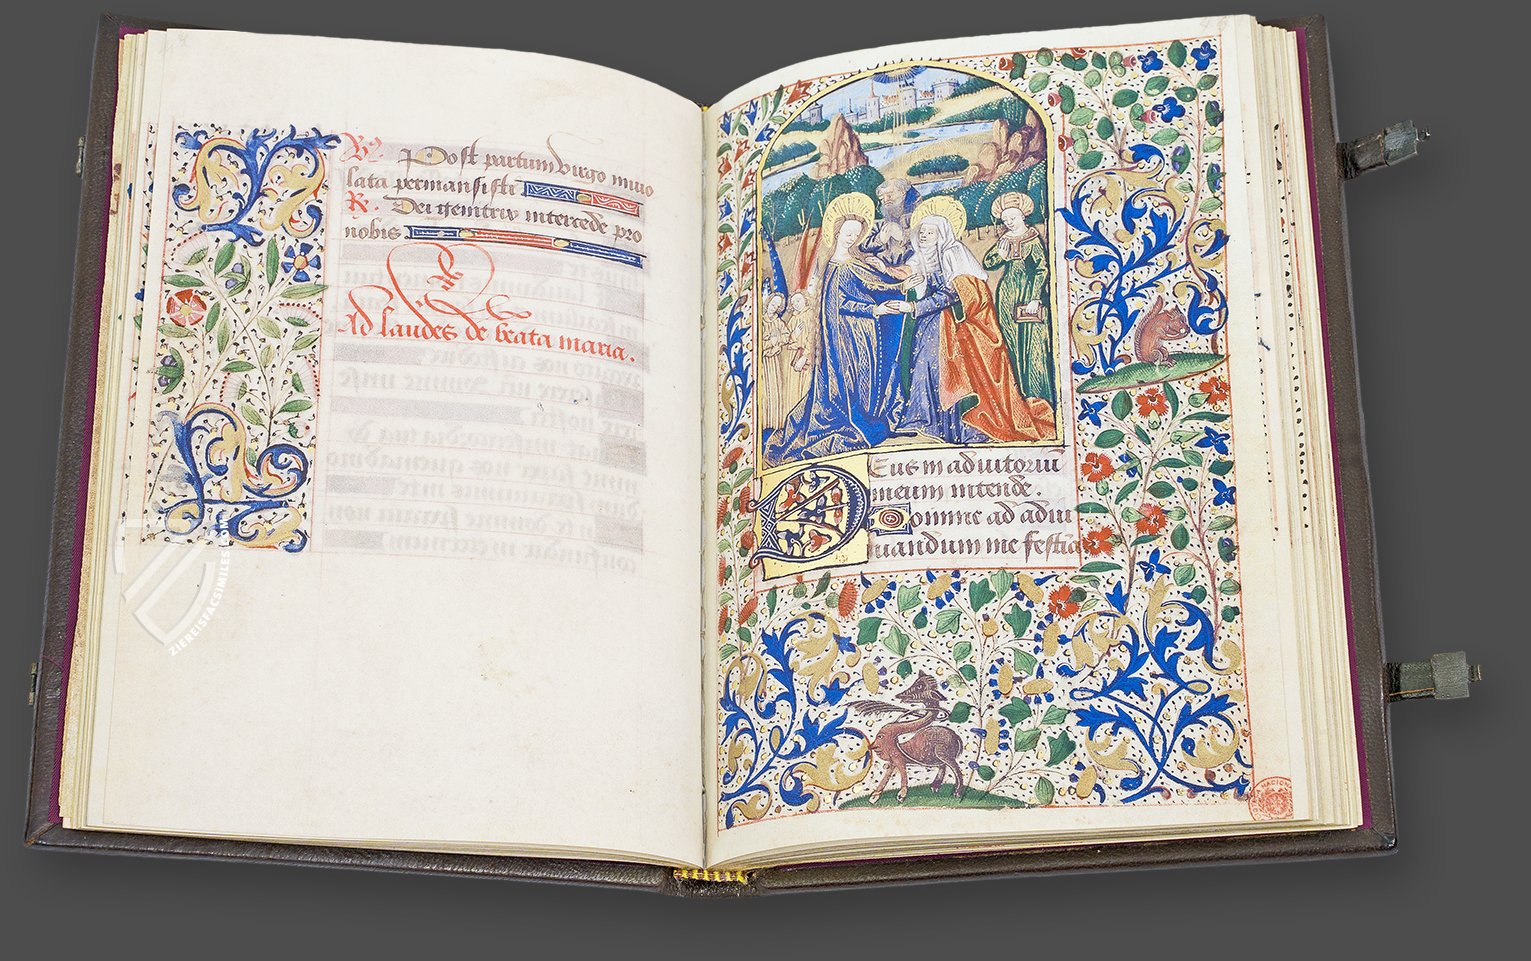 Post partum virgo invio
lata permansisti
R. Dei genitrix intercede pro
nobis
Ad laudes de beata maria.
Deus in adiutoriu
meum intende.
Domine ad adiu
uandum me festi
ZIEREISFACSIMILES.COM